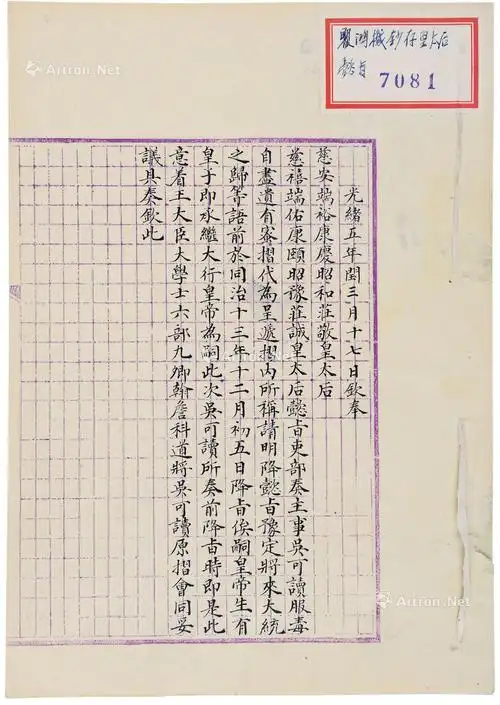 光緒五年閏三月十七日欽奉
慈安端裕康慶昭和莊敬皇太后
慈禧端佑康頤昭豫莊誠皇太后懿旨吏部奏主事吳可讀服毒
自盡遺有密摺代為呈遞摺內所稱請明降懿旨豫定將來大統
之歸等語前於同治十三年十二月初五日降旨俟嗣皇帝生有
皇子即承繼大行皇帝為嗣此次吳可讀所奏前降旨時即是此
意着王大臣大學士六部九卿翰詹科道將吳可讀原摺會同妥
議具奏欽此
鈔存
太后
懿旨
7081
Artron.Net
Artron.Net